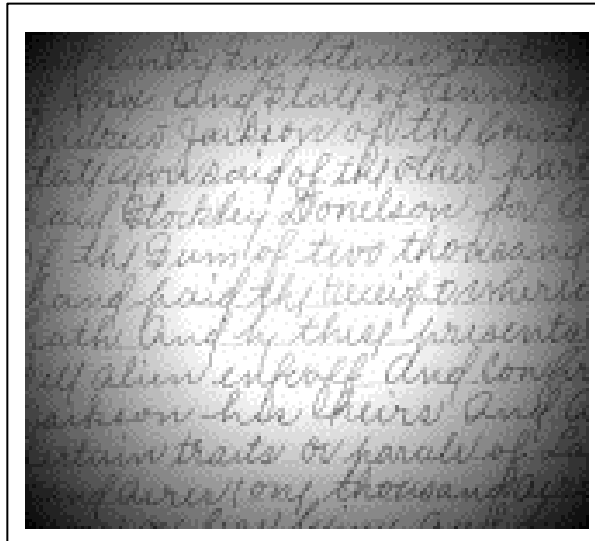 ninety six between Stock
Knox And State of Tennessee
Andrew Jackson of the Count
tate Aforesaid of the other part
aid Stockley Donelson for A
f the Sum of two thousand
hand paid the receipt wherea
hath And by these presents
ell alien enfeoff And Confir
Jackson his heirs And A
ertain traits or parcels of La
and acres one thousand acre